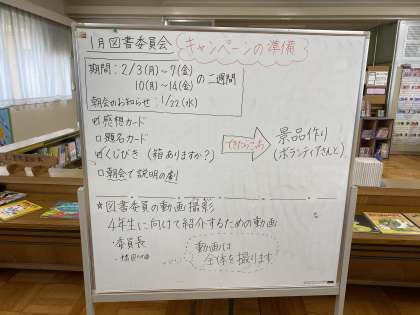 1月図書委員会 (キャンペーンの準備)
期間：2/3(月)~7(金)
10(月)~14(金) の二週間
朝会のお知らせ：1/22(水)
☑感想カード
□題名カード
☑くじびき (箱ありますか？)
□朝会で説明の劇
できたらこっち
景品作り
(ボランティアさんと)
☆図書委員の動画撮影
4年生に向けて紹介するための動画
・委員長
動画は
全体を撮ります